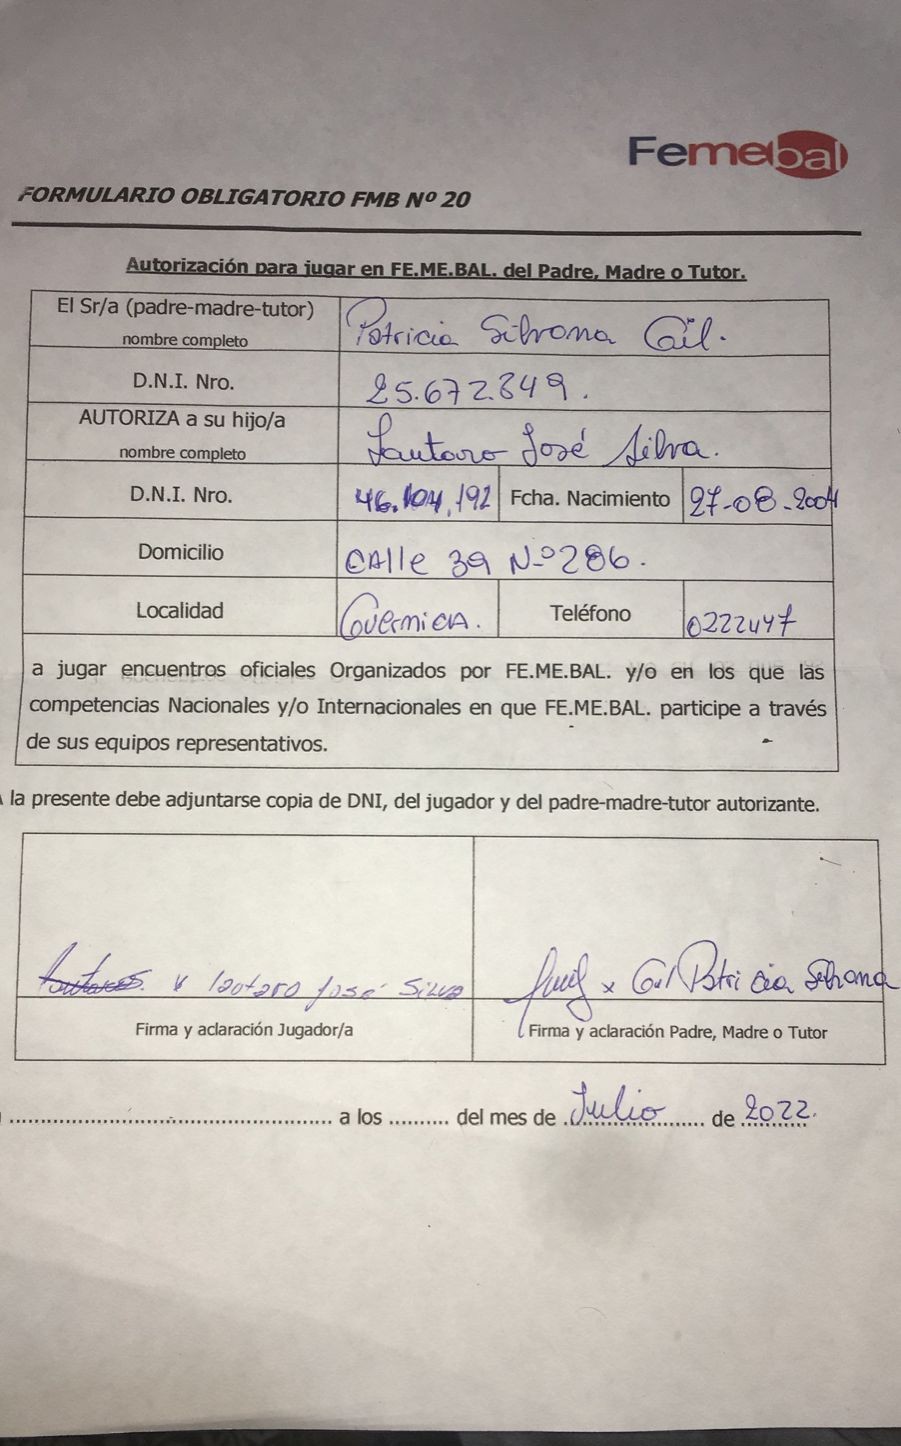 Femebal
FORMULARIO OBLIGATORIO FMB Nº 20
Autorización para jugar en FE.ME.BAL. del Padre, Madre o Tutor.
El Sr/a (padre-madre-tutor) nombre completo Patricia Silvana Gil.
D.N.I. Nro. 25.672.849.
AUTORIZA a su hijo/a nombre completo Lautaro José Silva.
D.N.I. Nro. 46.104.192 Fcha. Nacimiento 27-08-2004
Domicilio CAlle 39 Nº 286.
Localidad Guernica. Teléfono 0222447
a jugar encuentros oficiales Organizados por FE.ME.BAL. y/o en los que las
competencias Nacionales y/o Internacionales en que FE.ME.BAL. participe a través
de sus equipos representativos.
la presente debe adjuntarse copia de DNI, del jugador y del padre-madre-tutor autorizante.
lautaro José Silva
x Gil Patricia Silvana
Firma y aclaración Jugador/a
Firma y aclaración Padre, Madre o Tutor
a los ......... del mes de Julio de 2022.